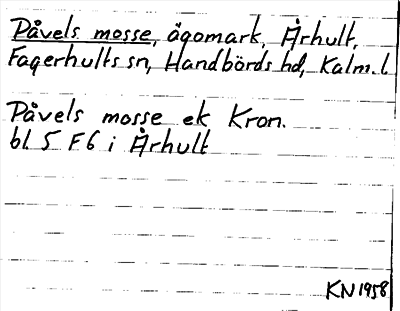 Påvels mosse, ägomark, Århult,
Fagerhults sn, Handbörds hd, Kalm. l
Påvels mosse ek Kron.
bl 5 F6 i Århult
KN 1958